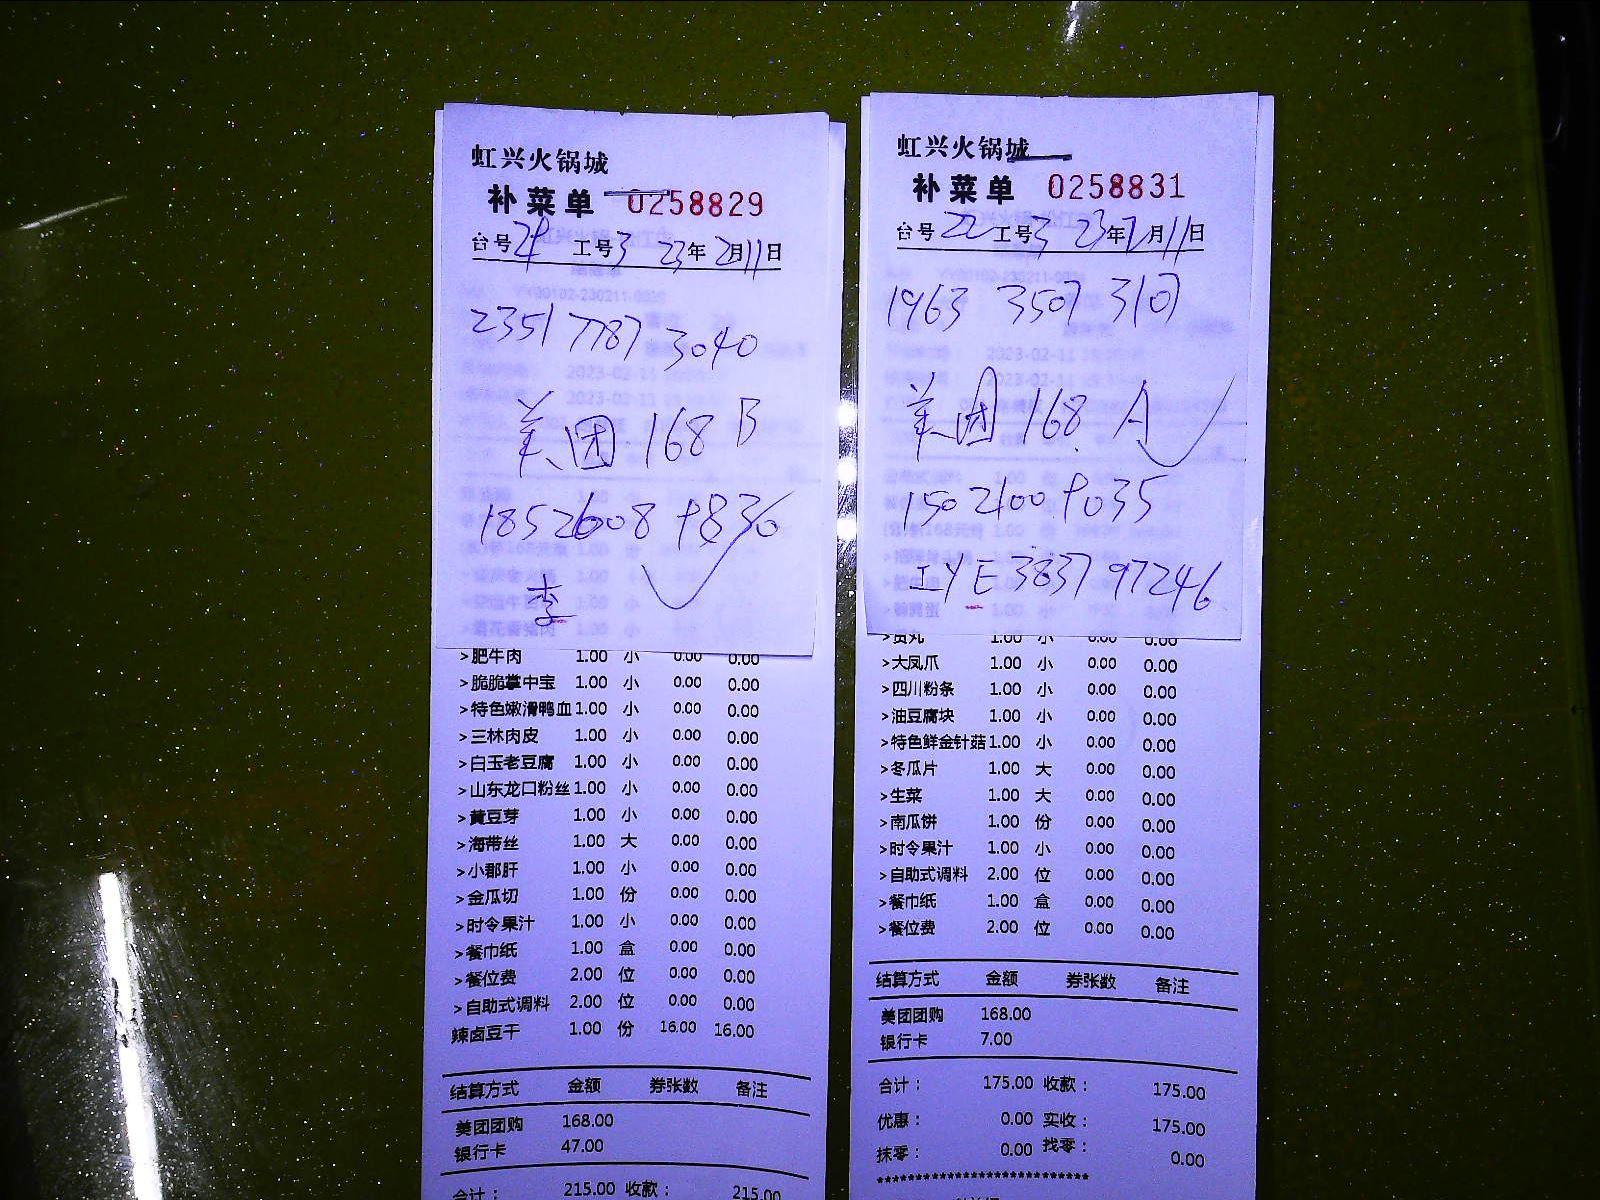 虹兴火锅城
补菜单 0258829
台号 21 工号 3 23年 2月11日
2351 7787 3040
美团 168 B
李
>肥牛肉 1.00 小 0.00 0.00
>脆脆掌中宝 1.00 小 0.00 0.00
>特色嫩滑鸭血 1.00 小 0.00 0.00
>三林肉皮 1.00 小 0.00 0.00
>白玉老豆腐 1.00 小 0.00 0.00
>山东龙口粉丝 1.00 小 0.00 0.00
>黄豆芽 1.00 小 0.00 0.00
>海带丝 1.00 大 0.00 0.00
>小郡肝 1.00 小 0.00 0.00
>金瓜切 1.00 份 0.00 0.00
>时令果汁 1.00 小 0.00 0.00
>餐巾纸 1.00 盒 0.00 0.00
>餐位费 2.00 位 0.00 0.00
>自助式调料 2.00 位 0.00 0.00
辣卤豆干 1.00 份 16.00 16.00
结算方式 金额 券张数 备注
美团团购 168.00
银行卡 47.00
合计： 215.00 收款： 215.00
虹兴火锅城
补菜单 0258831
台号 22 工号 3 23年 2月11日
1963 3507 3107
美团 168 A
>贡丸 1.00 小 0.00 0.00
>大凤爪 1.00 小 0.00 0.00
>四川粉条 1.00 小 0.00 0.00
>油豆腐块 1.00 小 0.00 0.00
>特色鲜金针菇 1.00 小 0.00 0.00
>冬瓜片 1.00 大 0.00 0.00
>生菜 1.00 大 0.00 0.00
>南瓜饼 1.00 份 0.00 0.00
>时令果汁 1.00 小 0.00 0.00
>自助式调料 2.00 位 0.00 0.00
>餐巾纸 1.00 盒 0.00 0.00
>餐位费 2.00 位 0.00 0.00
结算方式 金额 券张数 备注
美团团购 168.00
银行卡 7.00
合计： 175.00 收款： 175.00
优惠： 0.00 实收： 175.00
抹零： 0.00 找零： 0.00